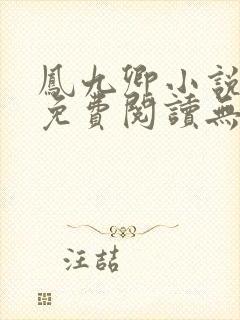 鳳九卿小説
免費閱讀無
汪喆